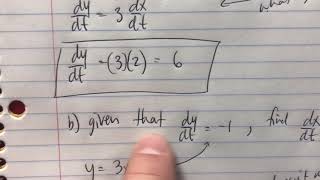 dy/dt = 3 dx/dt
dy/dt = (3)(2) = 6
b) given that dy/dt = -1, find dx/dt
y = 3